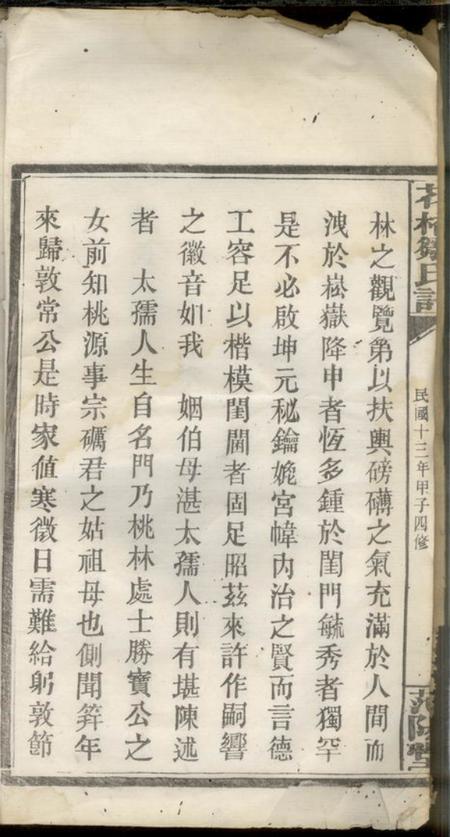 民國十三年甲子四修
林之觀覽第以扶輿磅礴之氣充滿於人間而
洩於崧嶽降申者恆多鍾於閨門毓秀者獨罕
是不必啟坤元秘鑰娩宮幃內治之賢而言德
工容足以楷模閨閫者固足昭茲來許作嗣響
之徽音如我 姻伯母湛太孺人則有堪陳述
者 太孺人生自名門乃桃林處士勝寶公之
女前知桃源事宗礪君之姑祖母也側聞筓年
來歸敦常公是時家值寒微日需難給躬敦節